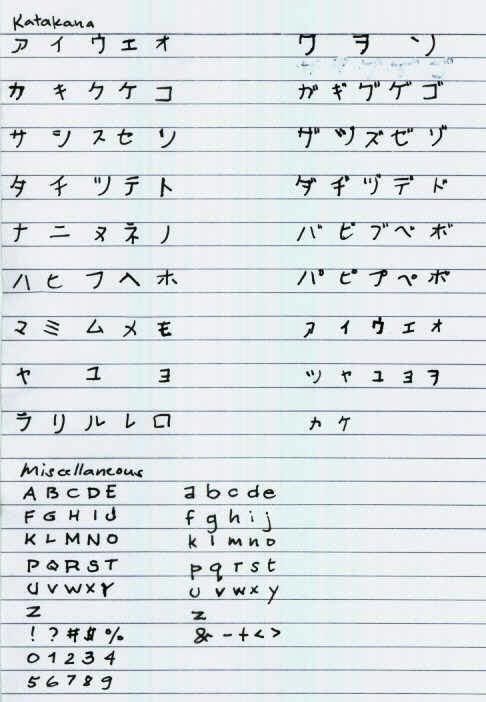 Katakana
ア イ ウ エ オ ワ ヲ ン
カ キ ク ケ コ ガ ギ グ ゲ ゴ
サ シ ス セ ソ ザ ヅ ズ ゼ ゾ
タ チ ツ テ ト ダ ヂ ヅ デ ド
ナ ニ ヌ ネ ノ バ ビ ブ ベ ボ
ハ ヒ フ ヘ ホ パ ピ プ ペ ポ
マ ミ ム メ モ ァ ィ ゥ ェ ォ
ヤ ユ ヨ ッ ャ ュ ョ ヲ
ラ リ ル レ ロ ヵ ヶ
Miscellaneous
A B C D E a b c d e
F G H I J f g h i j
K L M N O k l m n o
P Q R S T p q r s t
U V W X Y u v w x y
Z z
! ? # $ % & - + < >
0 1 2 3 4
5 6 7 8 9